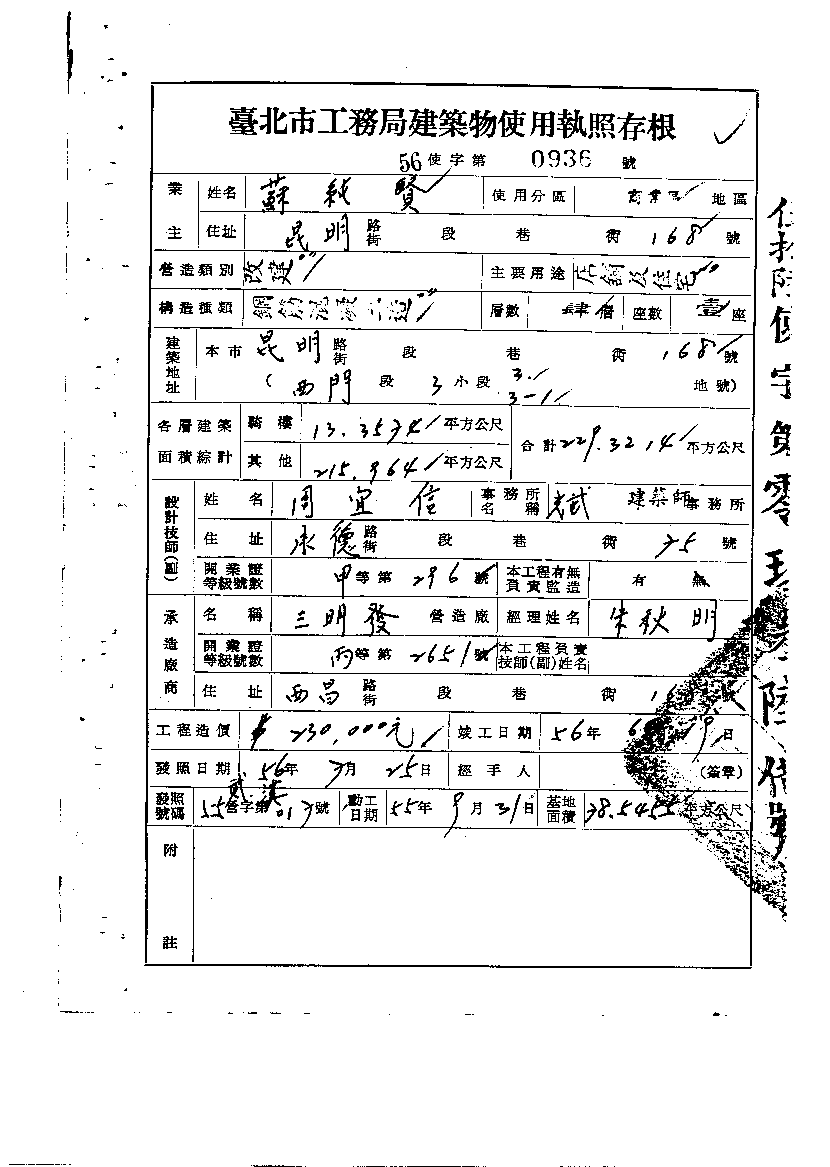 臺北市工務局建築物使用執照存根
56使字第 0936 號
業主 姓名 蘇純賢 使用分區 商業區 地區
住址 昆明 路街 段 巷 衖 168 號
營造類別 改建 主要用途 店鋪及住宅
構造種類 鋼筋混凝土造 層數 肆層 座數 壹座
建築地址 本市 昆明 路街 段 巷 衖 168 號
(西門 段 3 小段 3. 3-1 地號)
各層建築面積綜計 騎樓 13.3574 平方公尺 合計 229.3214 平方公尺
其他 215.964 平方公尺
設計技師(副) 姓名 周宜信 事務所名稱 建築師事務所
住址 永德 路街 段 巷 衖 75 號
開業證等級號數 甲等第 296 號 本工程有無負責監造 有 無
承造廠商 名稱 三明發 營造廠 經理姓名 朱秋明
開業證等級號數 丙等第 2651 號 本工程負責技師(副)姓名
住址 西昌 路街 段 巷 衖
工程造價 $230,000元 竣工日期 56年 6 日
發照日期 56年 7月 25日 經手人 (簽章)
發照號碼 55營字第 號 動工日期 55年 9月 31日 基地面積 78.5455 平方公尺
附註